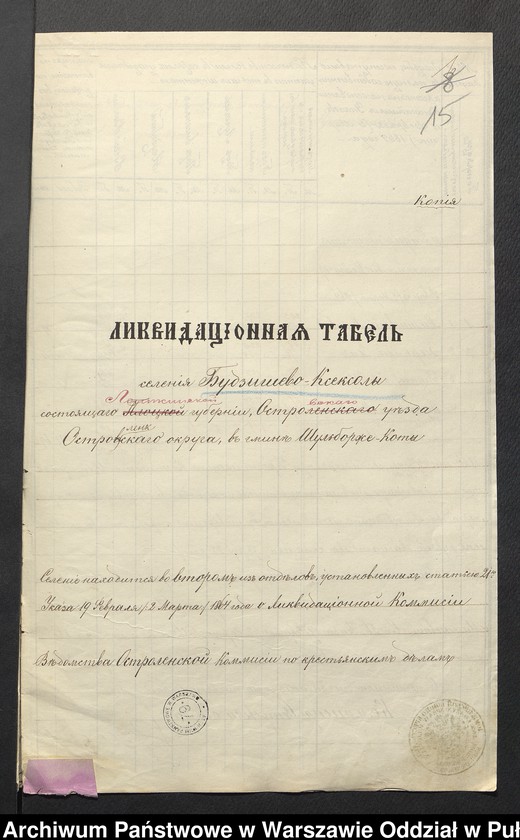 8
15
Копія
ЛИКВИДАЦІОННАЯ ТАБЕЛЬ
селенія Будзишево-Ксенсолы
Ломжинской
состоящаго Плоцкой губерніи, Остроленскаго уѣзда
Островскаго округа, въ гминѣ Шульборже-Коты
Селеніе находится во второмъ изъ отдѣловъ, установленныхъ статьею 24й
Указа 19 Февраля / 2 Марта / 1864 года о Ликвидаціонной Коммисіи
Вѣдомства Остроленской Коммисіи по крестьянскимъ дѣламъ
Archiwum Państwowe w Warszawie Oddział w Puł